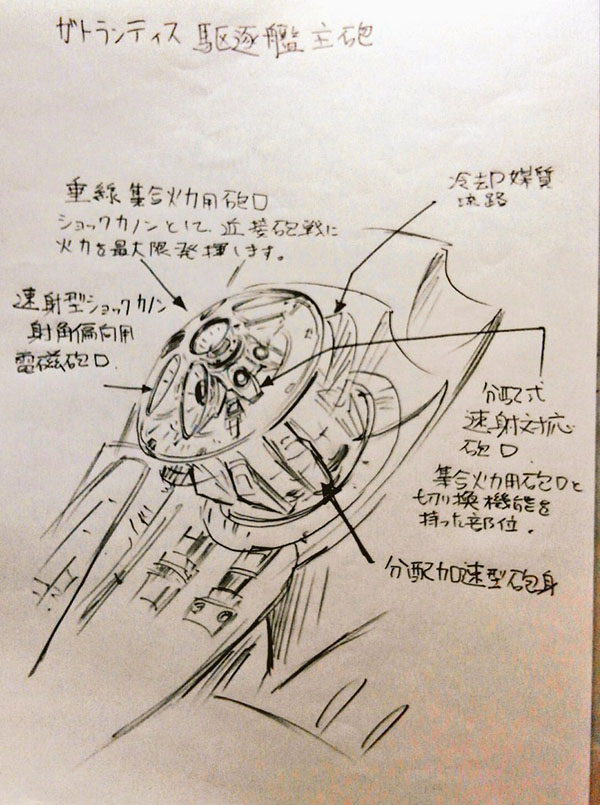 ガトランティス 駆逐艦主砲
垂線集合火力用砲口
ショックカノンとして、近接砲戦に
火力を最大限発揮します。
冷却媒質
流路
速射型ショックカノン
射角偏向用
電磁砲口
分配式
速射対応
砲口
集合火力用砲口と
切り換機能を
持った部位.
分配加速型砲身